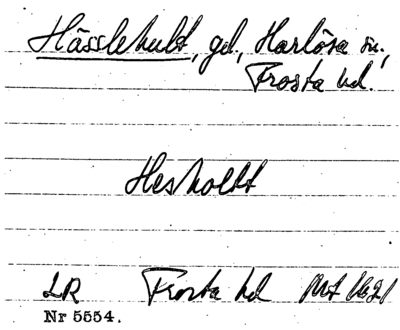 Hässlehult, gd, Harlösa sn,
Frosta hd.
Hesholtt
LR Frosta hd 1621
Nr 5554.